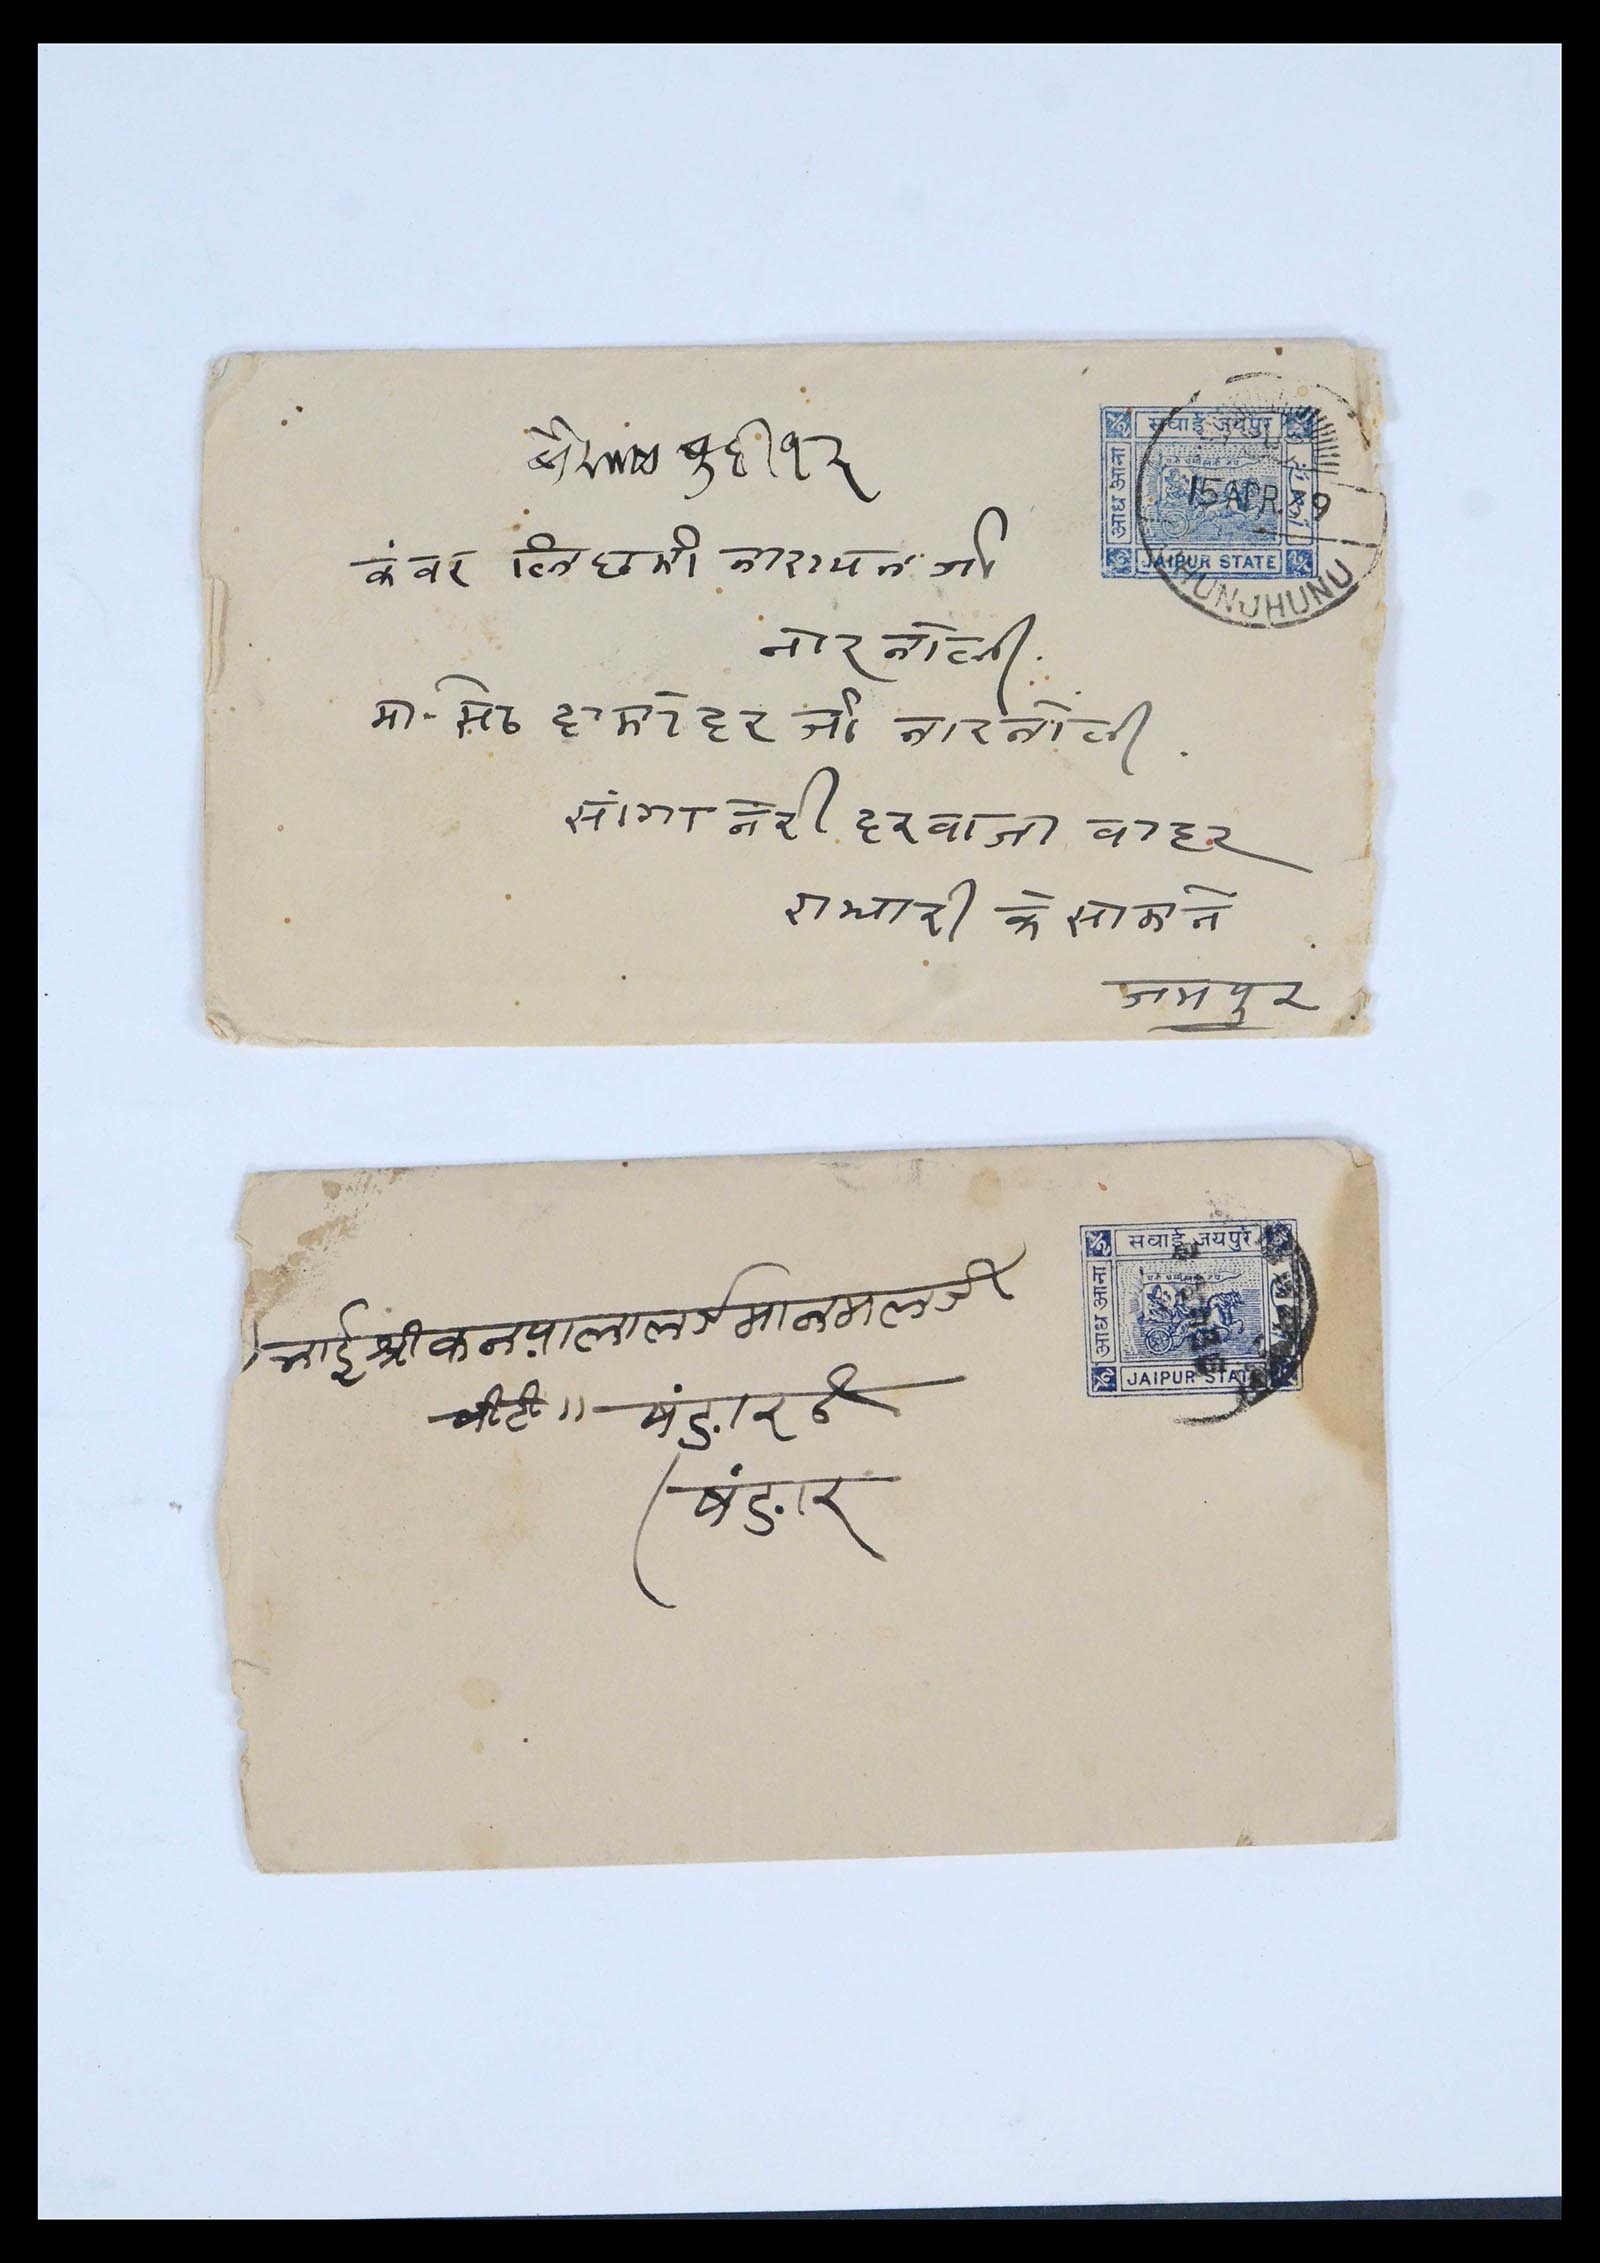 सवाई जयपुर
आध आना
15 APR 9
JAIPUR STATE
JHUNJHUNU
कंवर लिछमी नारायण जी
नारनोली.
मा- सेठ दामोदर जी नारनोली.
सांगानेरी दरवाजा बाहर
के सामने
जयपुर
सवाई जयपुर
आध आना
JAIPUR STATE
भाई श्री कनयालालजी मानमलजी
षंडार
(षंडार